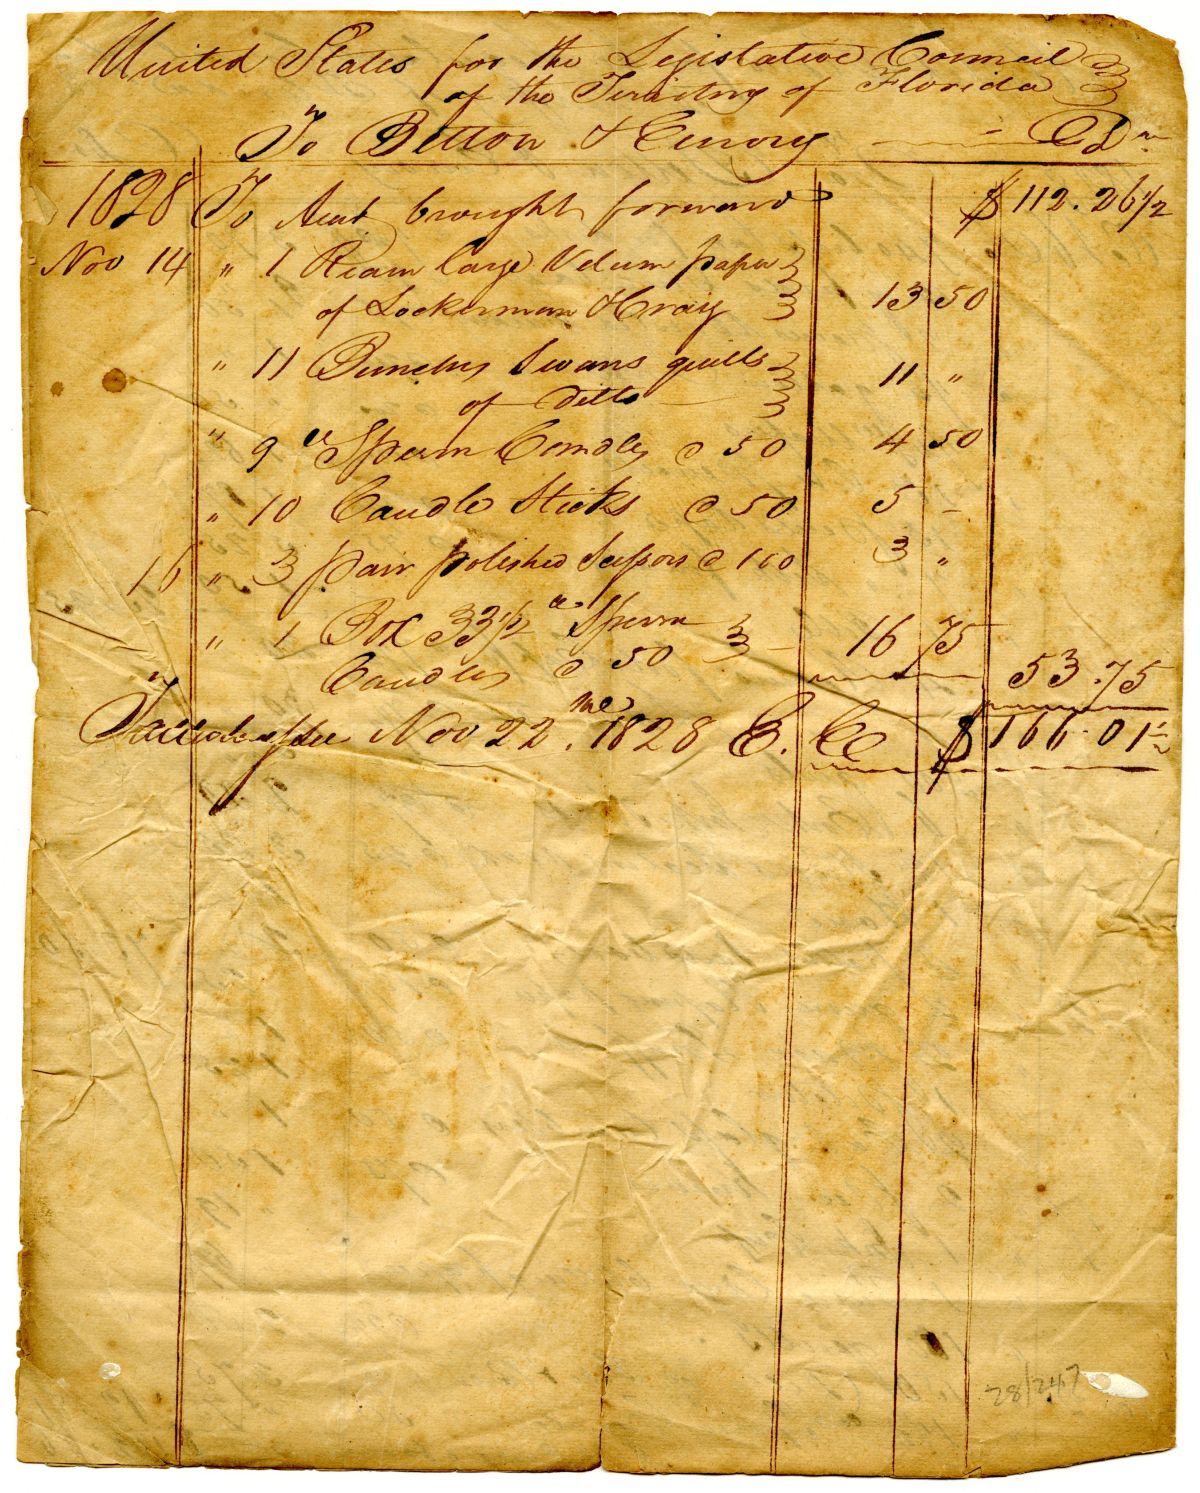 United States for the Legislative Council
of the Territory of Florida
To Betton & Emory Dr
1828 To Acct brought forward $ 112.26 1/2
Nov 14 " 1 Ream large Velum paper
of Lockerman & Gray 13 50
" 11 Bunches Swans quills
of Ditto 11 "
" 9 lb Sperm Candles @ 50 4 50
" 10 Candle Sticks @ 50 5 -
16 " 3 pair polished Scissors @ 100 3 "
" 1 Box 33 1/2 lb Sperm
Candles @ 50 16 75 53.75
Tallahassee Nov 22nd 1828 E. E. $ 166.01 1/2
28/247